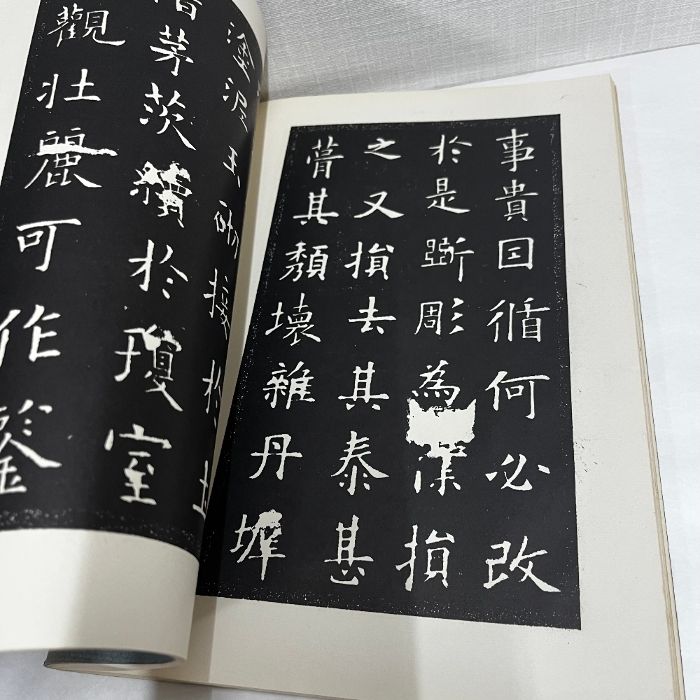 事貴囙循何必改
於是斵彫為樸損
之又損去其泰甚
葺其頹壞雜丹墀
塗泥玉砌接於土
階茅茨續於瓊室
觀壯麗可作鑒